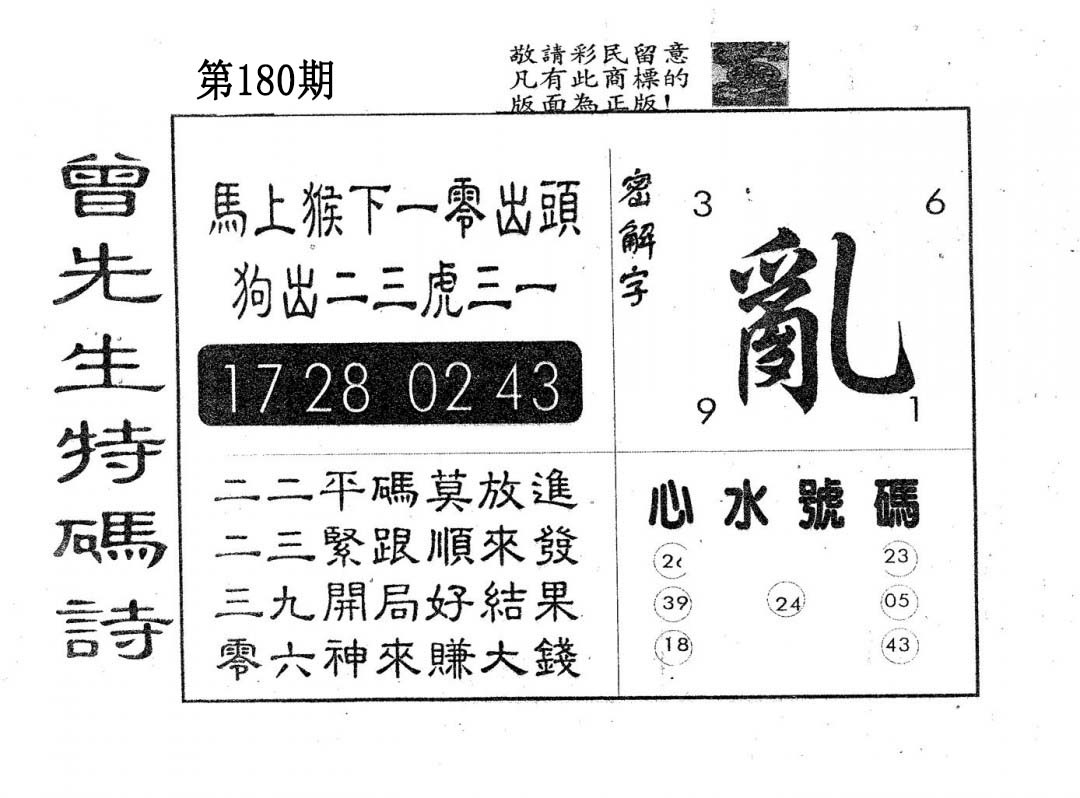 第180期
敬請彩民留意
凡有此商標的
版面為正版!
曾先生特碼詩
馬上猴下一零出頭
狗出二三虎三一
17 28 02 43
密解字
3 6
亂
9 1
二二平碼莫放進
二三緊跟順來發
三九開局好結果
零六神來賺大錢
心水號碼
26 23
39 24 05
18 43